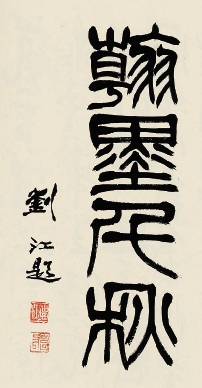 翰墨千秋
劉江題